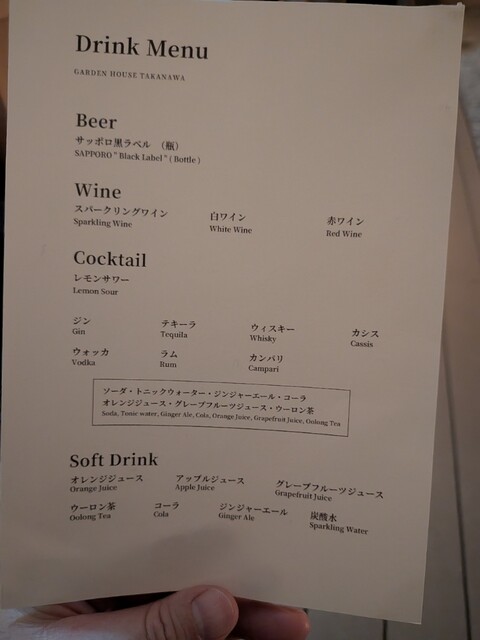 Drink Menu
GARDEN HOUSE TAKANAWA
Beer
サッポロ黒ラベル （瓶）
SAPPORO " Black Label " ( Bottle )
Wine
スパークリングワイン 白ワイン 赤ワイン
Sparkling Wine White Wine Red Wine
Cocktail
レモンサワー
Lemon Sour
ジン テキーラ ウィスキー カシス
Gin Tequila Whisky Cassis
ウォッカ ラム カンパリ
Vodka Rum Campari
ソーダ・トニックウォーター・ジンジャーエール・コーラ
オレンジジュース・グレープフルーツジュース・ウーロン茶
Soda, Tonic water, Ginger Ale, Cola, Orange Juice, Grapefruit Juice, Oolong Tea
Soft Drink
オレンジジュース アップルジュース グレープフルーツジュース
Orange Juice Apple Juice Grapefruit Juice
ウーロン茶 コーラ ジンジャーエール 炭酸水
Oolong Tea Cola Ginger Ale Sparkling Water